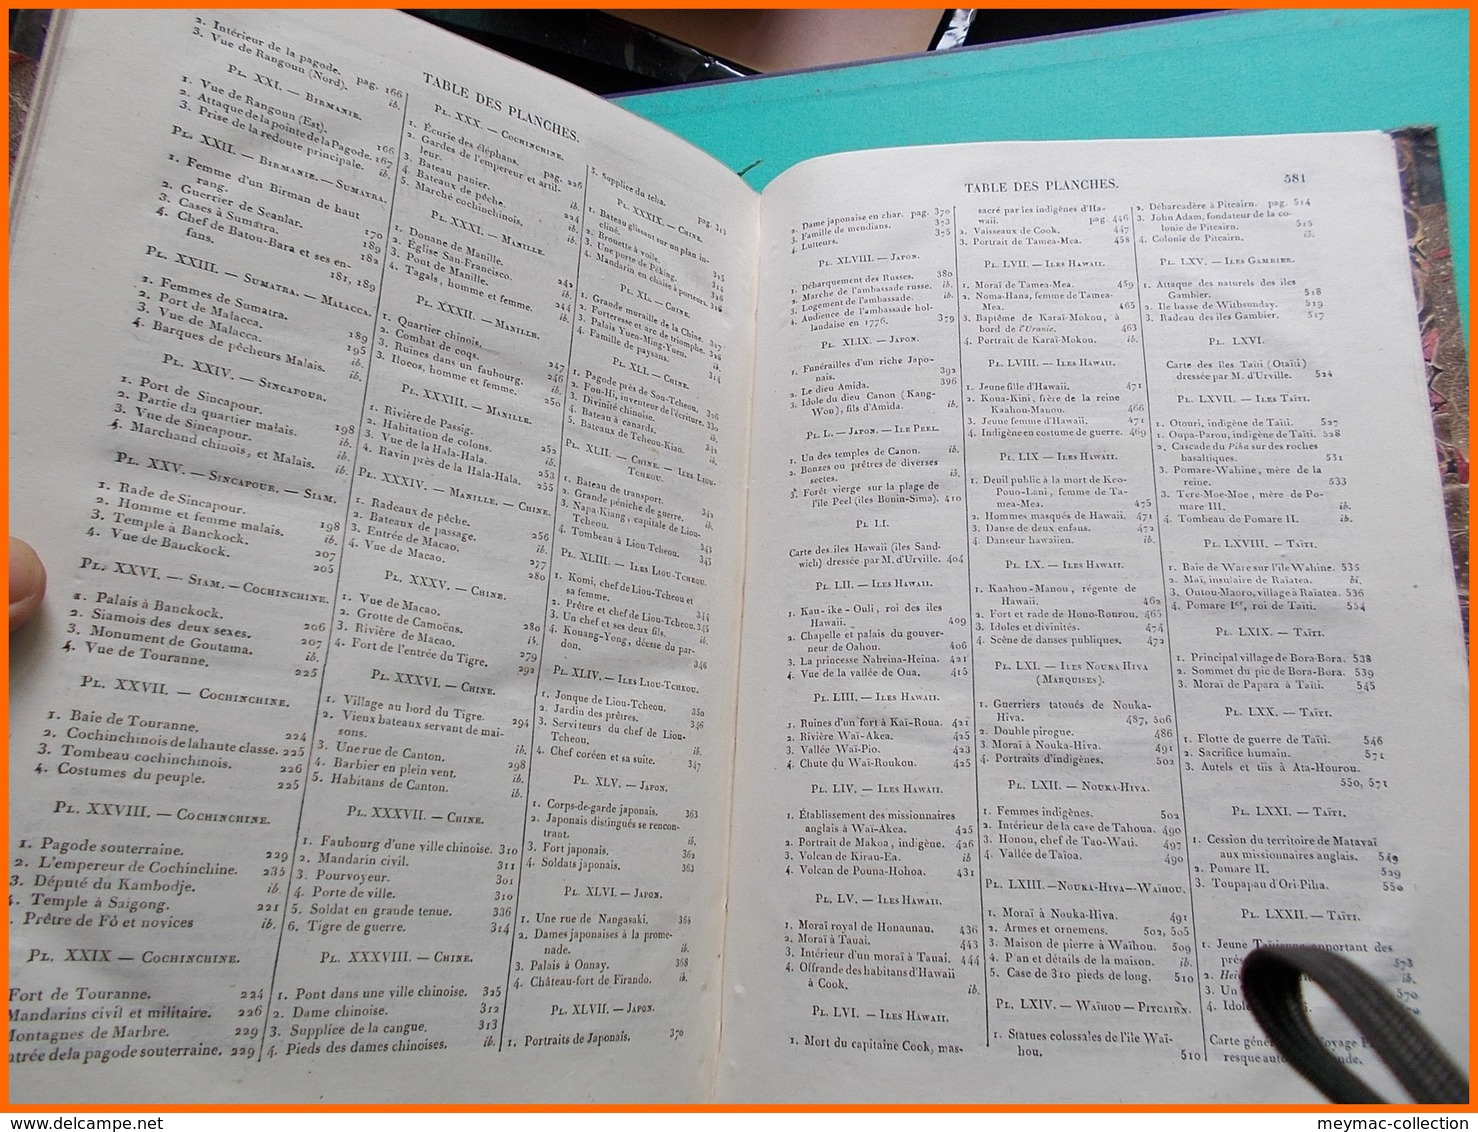 TABLE DES PLANCHES.
2. Intérieur de la pagode. pag. 166
3. Vue de Rangoun (Nord). ib.
PL. XXI. — BIRMANIE.
1. Vue de Rangoun (Est). 166
2. Attaque de la pointe de la Pagode. 167
3. Prise de la redoute principale. ib.
PL. XXII. — BIRMANIE. — SUMATRA.
1. Femme d'un Birman de haut
rang. 170
2. Guerrier de Scanlar. 189
3. Cases à Sumatra. 182
4. Chef de Batou-Bara et ses en-
fans. 181, 189
PL. XXIII. — SUMATRA. — MALACCA.
1. Femmes de Sumatra. 189
2. Port de Malacca. 195
3. Vue de Malacca. ib.
4. Barques de pêcheurs Malais. ib.
PL. XXIV. — SINCAPOUR.
1. Port de Sincapour. 198
2. Partie du quartier malais. ib.
3. Vue de Sincapour. ib.
4. Marchand chinois, et Malais. ib.
PL. XXV. — SINCAPOUR. — SIAM.
1. Rade de Sincapour. 198
2. Homme et femme malais. ib.
3. Temple à Banckock. 207
4. Vue de Banckock. 205
PL. XXVI. — SIAM. — COCHINCHINE.
1. Palais à Banckock. 206
2. Siamois des deux sexes. 207
3. Monument de Goutama. ib.
4. Vue de Touranne. 225
PL. XXVII. — COCHINCHINE.
1. Baie de Touranne. 224
2. Cochinchinois de la haute classe. 225
3. Tombeau cochinchinois. 226
4. Costumes du peuple. 225
PL. XXVIII. — COCHINCHINE.
1. Pagode souterraine. 229
2. L'empereur de Cochinchine. 235
3. Député du Kambodje. ib.
4. Temple à Saigong. 221
. Prêtre de Fô et novices ib.
PL. XXIX — COCHINCHINE.
Fort de Touranne. 224
Mandarins civil et militaire. 226
Montagnes de Marbre. 229
ntrée de la pagode souterraine. 229
PL. XXX. — COCHINCHINE.
1. Écurie des éléphans. pag. 226
2. Gardes de l'empereur et artil-
leur. ib.
3. Bateau panier. 224
4. Bateaux de pêche. ib.
5. Marché cochinchinois. ib.
PL. XXXI. — MANILLE.
1. Douane de Manille. 242
2. Église San-Francisco. ib.
3. Pont de Manille. 244
4. Tagals, homme et femme. ib.
PL. XXXII. — MANILLE.
1. Quartier chinois. 247
2. Combat de coqs. 246
3. Ruines dans un faubourg. ib.
4. Ilocos, homme et femme. 250
PL. XXXIII. — MANILLE.
1. Rivière de Passig. 252
2. Habitation de colons. ib.
3. Vue de la Hala-Hala. 253
4. Ravin près de la Hala-Hala. 255
PL. XXXIV. — MANILLE. — CHINE.
1. Radeaux de pêche. 256
2. Bateaux de passage. ib.
3. Entrée de Macao. 277
4. Vue de Macao. 280
PL. XXXV. — CHINE.
1. Vue de Macao. 280
2. Grotte de Camoëns. ib.
3. Rivière de Macao. 279
4. Fort de l'entrée du Tigre. 292
PL. XXXVI. — CHINE.
1. Village au bord du Tigre. 294
2. Vieux bateaux servant de mai-
sons. ib.
3. Une rue de Canton. 298
4. Barbier en plein vent. ib.
5. Habitans de Canton. ib.
PL. XXXVII. — CHINE.
1. Faubourg d'une ville chinoise. 310
2. Mandarin civil. 311
3. Pourvoyeur. 301
4. Porte de ville. 310
5. Soldat en grande tenue. 336
6. Tigre de guerre. 314
PL. XXXVIII. — CHINE.
1. Pont dans une ville chinoise. 325
2. Dame chinoise. 312
3. Supplice de la cangue. 313
4. Pieds des dames chinoises. ib.
5. Supplice du tcha. pag. 313
PL. XXXIX. — CHINE.
1. Bateau glissant sur un plan in-
cliné. 325
2. Brouette à voile. 314
3. Une porte de Péking. 326
4. Mandarin en chaise à porteurs. 316
PL. XL. — CHINE.
1. Grande muraille de la Chine. 327
2. Forteresse et arc de triomphe. 326
3. Palais Yuen-Ming-Yuen. ib.
4. Famille de paysans. 314
PL. XLI. — CHINE.
1. Pagode près de Sou-Tcheou. 326
2. Fou-Hi, inventeur de l'écriture. 330
3. Divinité chinoise. ib.
4. Bateau à canards. ib.
5. Bateaux de Tcheou-Kiao. 342
PL. XLII. — CHINE. — ILES LIOU-
TCHEOU.
1. Bateau de transport. 342
2. Grande péniche de guerre. ib.
3. Napa-Kiang, capitale de Liou-
Tcheou. 343
4. Tombeau à Liou-Tcheou. 345
PL. XLIII. — ILES LIOU-TCHEOU.
1. Komi, chef de Liou-Tcheou et
sa femme. 344
2. Prêtre et chef de Liou-Tcheou. 345
3. Un chef et ses deux fils. ib.
4. Kouang-Yong, déesse du par-
don. 346
PL. XLIV. — ILES LIOU-TCHEOU.
1. Jonque de Liou-Tcheou. 350
2. Jardin des prêtres. 346
3. Serviteurs du chef de Liou-
Tcheou. ib.
4. Chef coréen et sa suite. 347
PL. XLV. — JAPON.
1. Corps-de-garde japonais. 363
2. Japonais distingués se rencon-
trant. ib.
3. Fort japonais. 362
4. Soldats japonais. 363
PL. XLVI. — JAPON.
1. Une rue de Nangasaki. 366
2. Dames japonaises à la prome-
nade. ib.
3. Palais à Onnay. 368
4. Château-fort de Firando. ib.
PL. XLVII. — JAPON.
1. Portraits de Japonais. 370
TABLE DES PLANCHES. 581
2. Dame japonaise en char. pag. 370
3. Famille de mendians. 373
4. Lutteurs. 375
PL. XLVIII. — JAPON.
1. Débarquement des Russes. 380
2. Marche de l'ambassade russe. ib.
3. Logement de l'ambassade. ib.
4. Audience de l'ambassade hol-
landaise en 1776. 379
PL. XLIX. — JAPON.
1. Funérailles d'un riche Japo-
nais. 392
2. Le dieu Amida. 396
3. Idole du dieu Canon (Kang-
Won), fils d'Amida. ib.
PL. L. — JAPON. — ILE PEEL.
1. Un des temples de Canon. ib.
2. Bonzes ou prêtres de diverses
sectes. ib.
3. Forêt vierge sur la plage de
l'île Peel (îles Bonin-Sima). 410
PL. LI.
Carte des îles Hawaii (îles Sand-
wich) dressée par M. d'Urville. 404
PL. LII. — ILES HAWAII.
1. Kau-ike-Ouli, roi des îles
Hawaii. 409
2. Chapelle et palais du gouver-
neur de Oahou. 406
3. La princesse Naheina-Heina. 421
4. Vue de la vallée de Oua. 415
PL. LIII. — ILES HAWAII.
1. Ruines d'un fort à Kaï-Roua. 421
2. Rivière Waï-Akea. 425
3. Vallée Waï-Pio. 423
4. Chute du Waï-Roukou. 425
PL. LIV. — ILES HAWAII.
1. Établissement des missionnaires
anglais à Waï-Akea. 425
2. Portrait de Makoa, indigène. 426
3. Volcan de Kirau-Ea. ib
4. Volcan de Pouna-Hohoa. 431
PL. LV. — ILES HAWAII.
1. Moraï royal de Honaunau. 436
2. Moraï à Tauai. 443
3. Intérieur d'un moraï à Tauai. 444
4. Offrande des habitans d'Hawaii
à Cook. ib.
PL. LVI. — ILES HAWAII.
1. Mort du capitaine Cook, mas-
sacré par les indigènes d'Ha-
waii. pag. 446
2. Vaisseaux de Cook. 447
3. Portrait de Tamea-Mea. 458
PL. LVII. — ILES HAWAII.
1. Moraï de Tamea-Mea. 459
2. Noma-Hana, femme de Tamea-
Mea. 465
3. Baptême de Karaï-Mokou, à
bord de l'Uranie. 463
4. Portrait de Karaï-Mokou. ib.
PL. LVIII. — ILES HAWAII.
1. Jeune fille d'Hawaii. 471
2. Koua-Kini, frère de la reine
Kaahou-Manou. 466
3. Jeune femme d'Hawaii. 471
4. Indigène en costume de guerre. 469
PL. LIX — ILES HAWAII.
1. Deuil public à la mort de Keo-
Pouo-Lani, femme de Ta-
mea-Mea. 475
2. Hommes masqués de Hawaii. 471
3. Danse de deux enfans. 472
4. Danseur hawaiien. ib.
PL. LX. — ILES HAWAII.
1. Kaahou-Manou, régente de
Hawaii. 462
2. Fort et rade de Hono-Rourou. 465
3. Idoles et divinités. 474
4. Scène de danses publiques. 472
PL. LXI. — ILES NOUKA HIVA
(MARQUISES).
1. Guerriers tatoués de Nouka-
Hiva. 487, 506
2. Double pirogue. 486
3. Moraï à Nouka-Hiva. 491
4. Portraits d'indigènes. 502
PL. LXII. — NOUKA-HIVA.
1. Femmes indigènes. 502
2. Intérieur de la case de Tahoua. 490
3. Honou, chef de Tao-Wati. 497
4. Vallée de Taïoa. 490
PL. LXIII. — NOUKA-HIVA — WAÏHOU.
1. Moraï à Nouka-Hiva. 491
2. Armes et ornemens. 502, 505
3. Maison de pierre à Waïhou. 509
4. Plan et détails de la maison. ib.
5. Case de 310 pieds de long. 510
PL. LXIV. — WAÏHOU — PITCAIRN.
1. Statues colossales de l'île Waï-
hou. 510
2. Débarcadère à Pitcairn. pag. 514
3. John Adam, fondateur de la co-
lonie de Pitcairn. 515
4. Colonie de Pitcairn. ib.
PL. LXV. — ILES GAMBIER.
1. Attaque des naturels des îles
Gambier. 518
2. Ile basse de Withsunday. 519
3. Radeau des îles Gambier. 517
PL. LXVI.
Carte des îles Taïti (Otaïti)
dressée par M. d'Urville. 524
PL. LXVII. — ILES TAÏTI.
1. Otouri, indigène de Taïti. 527
1. Oupa-Parou, indigène de Taïti. 528
2. Cascade du Piha sur des roches
basaltiques. 531
3. Pomare-Wahine, mère de la
reine. 533
3. Tere-Moe-Moe, mère de Po-
mare III. ib.
4. Tombeau de Pomare II. ib.
PL. LXVIII. — TAÏTI.
1. Baie de Ware sur l'île Wahine. 535
2. Maï, insulaire de Raiatea. bi.
3. Outou-Maoro, village à Raiatea. 536
4. Pomare Ier, roi de Taïti. 554
PL. LXIX. — TAÏTI.
1. Principal village de Bora-Bora. 538
2. Sommet du pic de Bora-Bora. 539
3. Moraï de Papara à Taïti. 545
PL. LXX. — TAÏTI.
1. Flotte de guerre de Taïti. 546
2. Sacrifice humain. 571
3. Autels et tiis à Ata-Hourou.
550, 571
PL. LXXI. — TAÏTI.
1. Cession du territoire de Matavaï
aux missionnaires anglais. 549
2. Pomare II. 529
3. Toupapau d'Ori-Piha. 550
PL. LXXII. — TAÏTI.
1. Jeune Taïtienne apportant des
573
2. ib.
3. Un 570
4. Idol ib.
Carte
meymac-collection